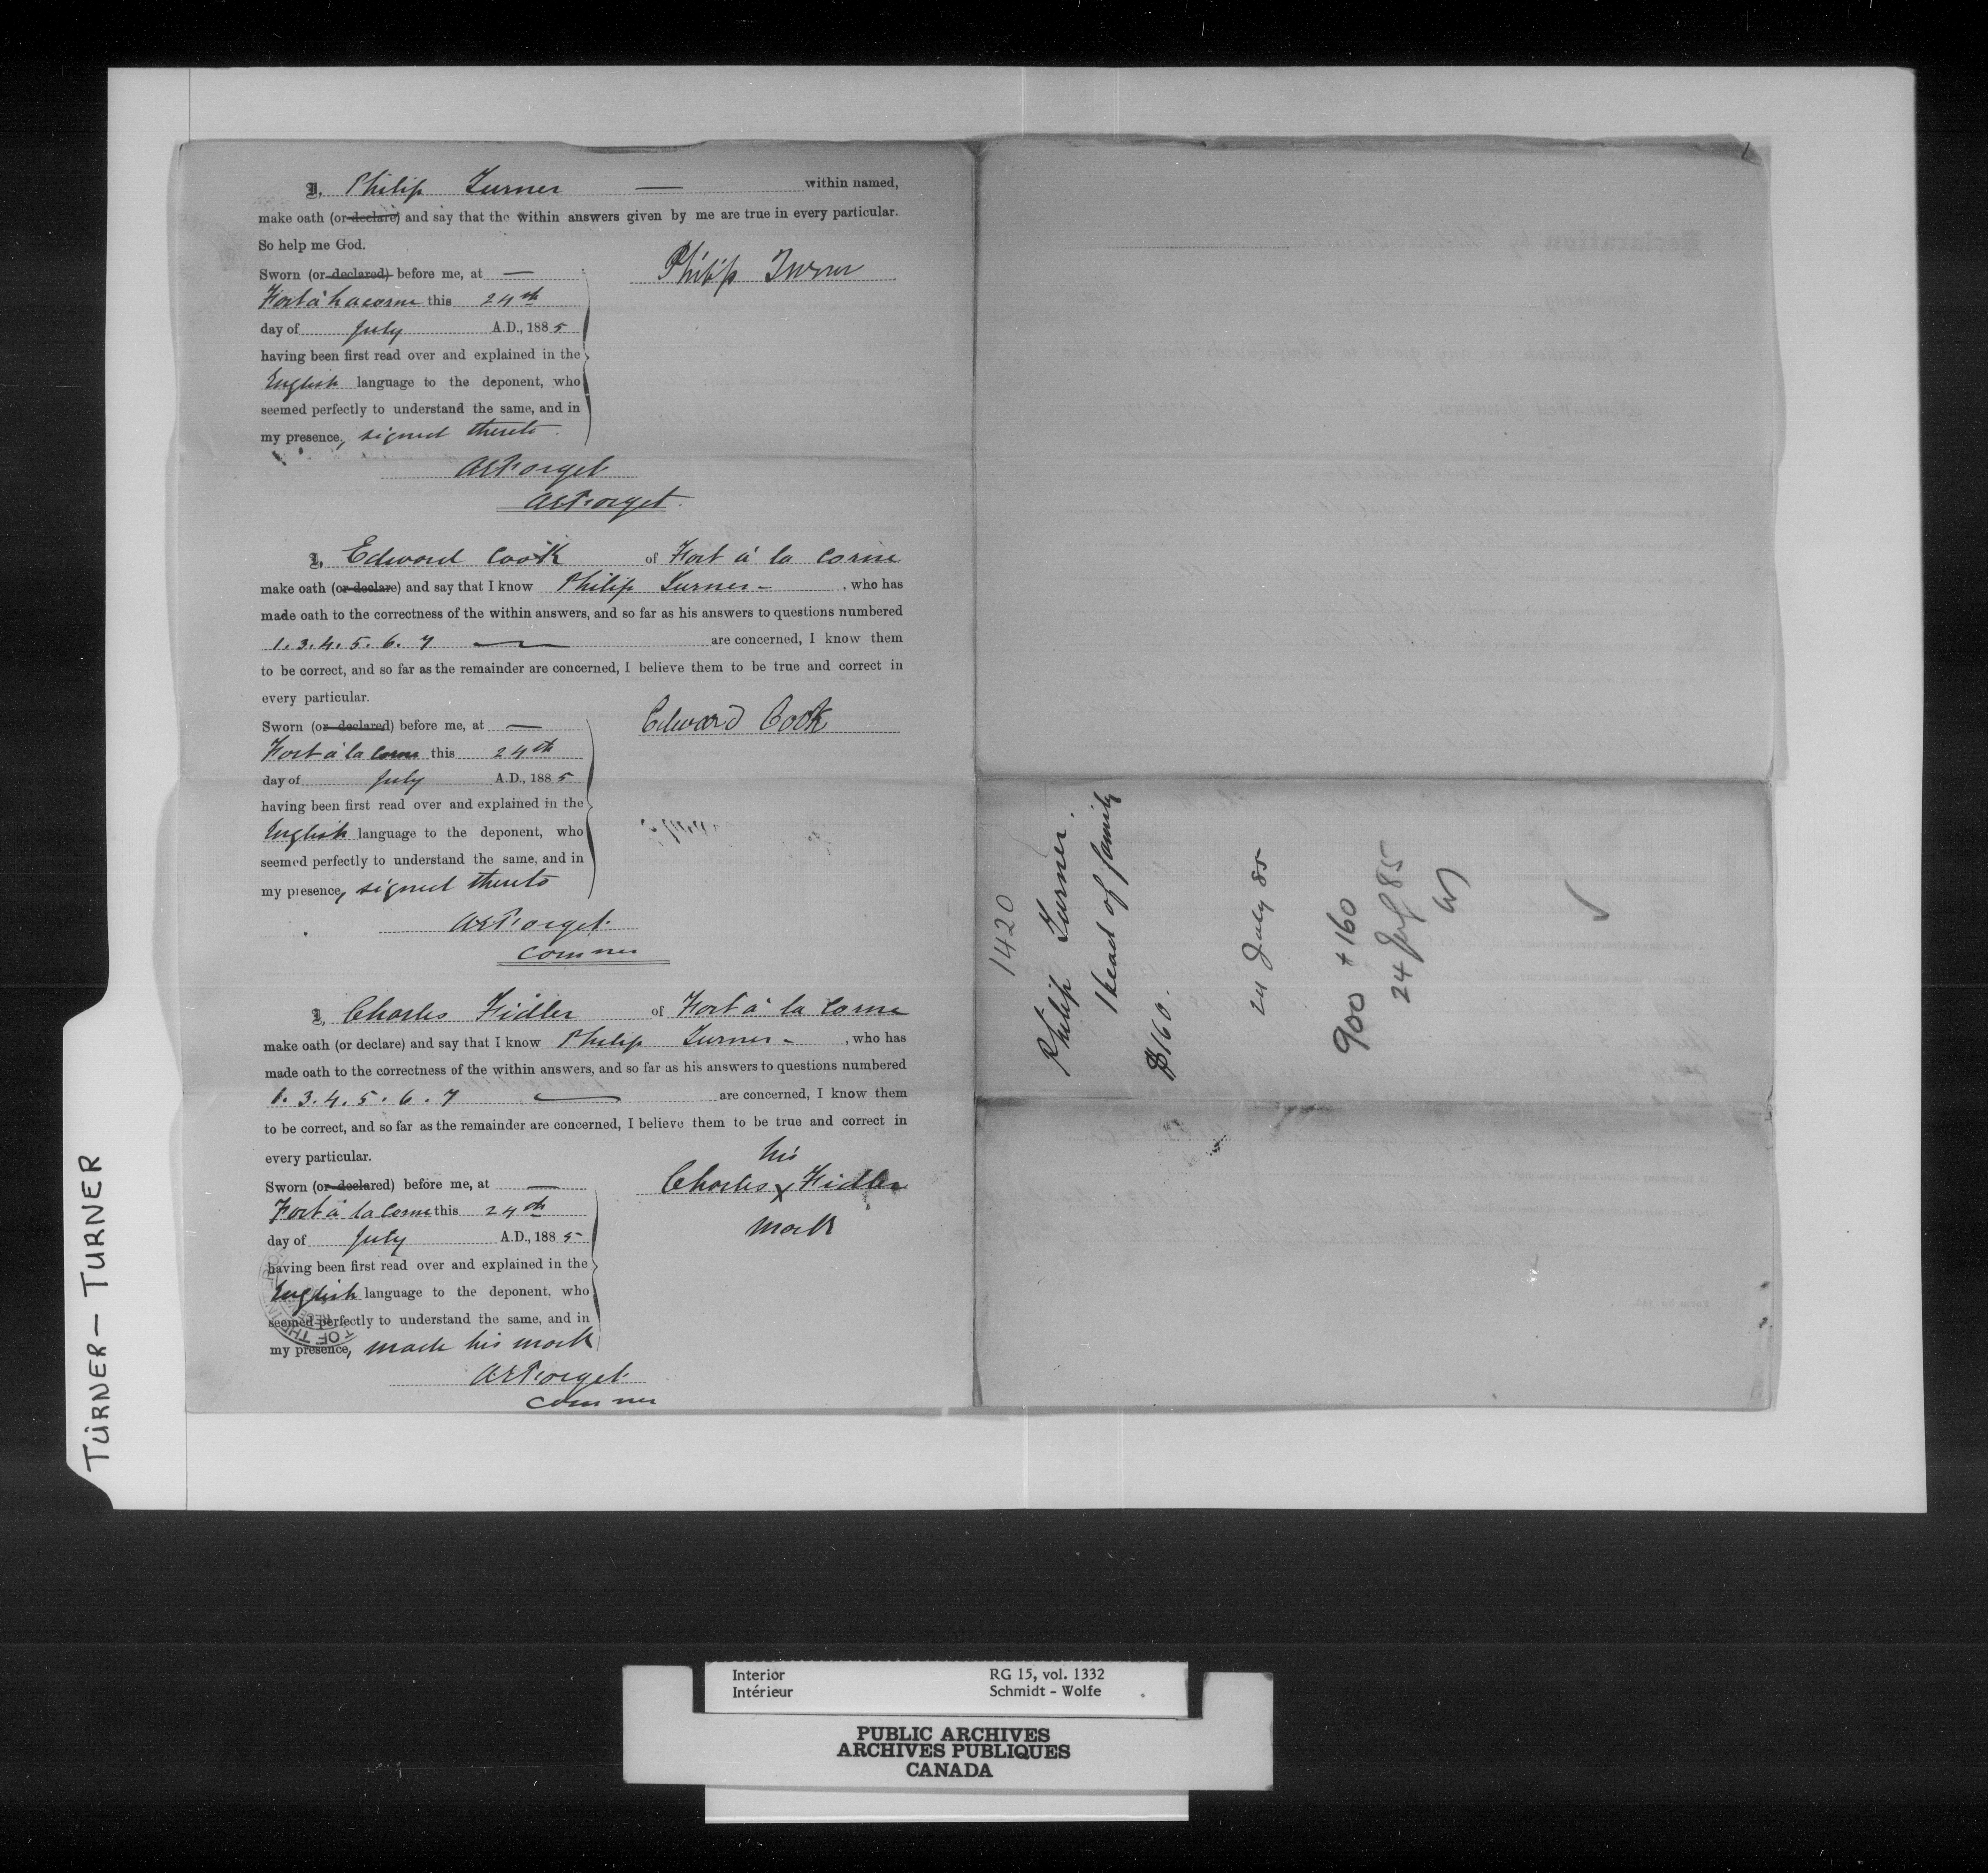 I, Philip Turner — within named,
make oath (or declare) and say that the within answers given by me are true in every particular.
So help me God.
Philip Turner
Sworn (or declared) before me, at —
Fort à la corne this 24th
day of July A.D., 1885
having been first read over and explained in the
English language to the deponent, who
seemed perfectly to understand the same, and in
my presence, signed thereto
AEForget
AEForget.
I, Edward Cook of Fort à la Corne
make oath (or declare) and say that I know Philip Turner - , who has
made oath to the correctness of the within answers, and so far as his answers to questions numbered
1. 3. 4. 5. 6. 7 — are concerned, I know them
to be correct, and so far as the remainder are concerned, I believe them to be true and correct in
every particular.
Edward Cook
Sworn (or declared) before me, at —
Fort à la Corne this 24th
day of July A.D., 1885
having been first read over and explained in the
English language to the deponent, who
seemed perfectly to understand the same, and in
my presence, signed thereto
AEForget
Commer
I, Charles Fidler of Fort à la Corne
make oath (or declare) and say that I know Philip Turner - , who has
made oath to the correctness of the within answers, and so far as his answers to questions numbered
1. 3. 4. 5. 6. 7 — are concerned, I know them
to be correct, and so far as the remainder are concerned, I believe them to be true and correct in
every particular.
his
Charles x Fidler
mark
Sworn (or declared) before me, at —
Fort à la Corne this 24th
day of July A.D., 1885
having been first read over and explained in the
English language to the deponent, who
seemed perfectly to understand the same, and in
my presence, made his mark
AEForget
Commer
1420
Philip Turner.
Head of family
$160.
24 July 85
900 + 160
24 July 85
TURNER — TURNER
Interior RG 15, vol. 1332
Intérieur Schmidt - Wolfe
PUBLIC ARCHIVES
ARCHIVES PUBLIQUES
CANADA